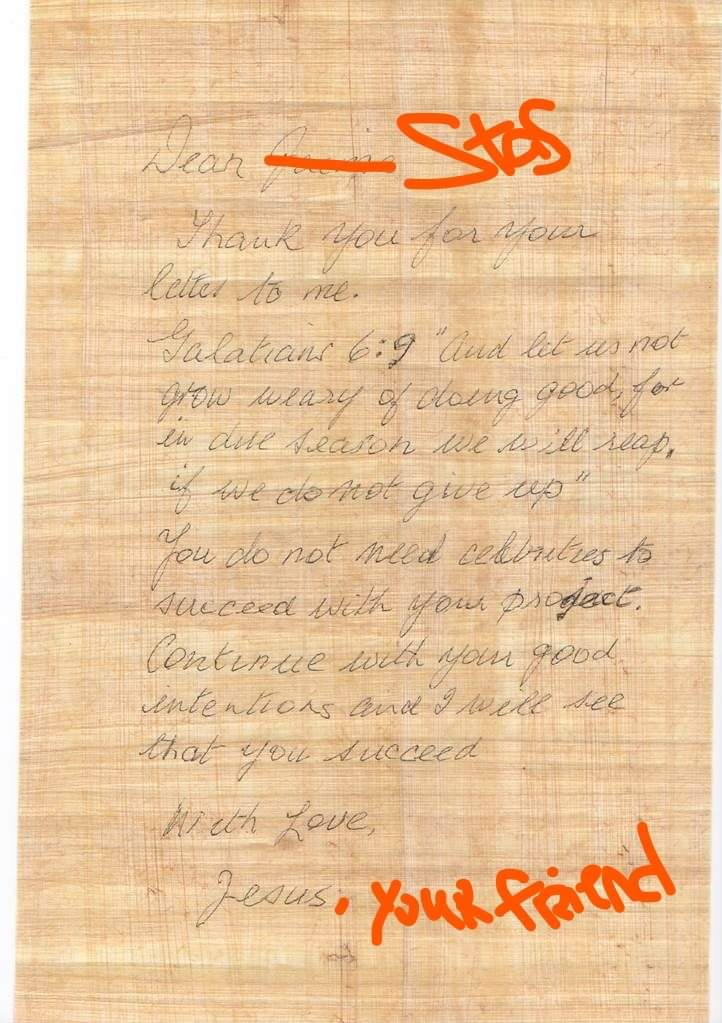 Dear Stas
Thank you for your
letter to me.
Galatians 6:9 "And let us not
grow weary of doing good, for
in due season we will reap,
if we do not give up"
You do not need celebrities to
succeed with your project.
Continue with your good
intentions and I will see
that you succeed
With Love,
Jesus. youR fRiEnd